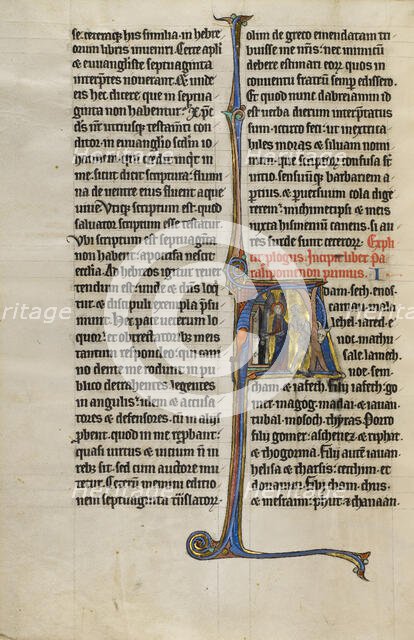 se. ceteraque his similia in hebre
orum libris inveniri. Certe apli
& euuangliste septuaginta
interpretes noverant. & unde
eis hec dicere que in septua
ginta non habentur. Xpc
ds nr utriusque testamti con
ditor in euuanglio sedm io
hannem. qui credit inquit in
me. sicut dicit scriptura. flumi
na de ventre eius fluent aque
vive. Utique scriptum est. quod
salvator scriptum esse testatur.
Ubi scriptum est. septuaginta
non habent. apocrifa nescit
ecclesia. Ad hebreos igitur rever
tendum est. unde &
& discipuli exempla
sumit. Hec pace veterum lo
quor. & obtrectatoribus meis
tantum respondeo. qui cani
no dente me rodunt in pu
blico detrahentes. legentes
in angulis. idem & accusa
tores & defensores. cum in aliis
probent. quod in me reprobant.
quasi virtus & vitium non in
rebus sit. sed cum auctore mu
tetur. Ceterum memini editio
nem septuaginta translator
olim de greco emendatam tri
buisse me nris. nec inimicum
debere estimari eorum. quos in
conventu fratrum semper edissero.
Et quod nunc dabreiamin id
est verba dierum interpretatus
sum. icirco feci. ut inextrica
biles moras & silvam nomi
num que scriptorum confusa sunt
vitio. sensuumque barbariem a
pertius & per versuum cola dige
rerem. michimetipsi & meis
iuxta hismenium canens. si au
res surde sunt ceterorum. Expli
cit plogus. Incipit liber pa
ralipomenon primus. I.
Adam. seth. enos.
cainan. mala
lehel. iared. e
noc. mathu
sale. lamech.
noe. sem.
cham. & iafeth. Filii iafeth. go
mer. magog. madai. & iavan.
tubal. mosoch. thyras. Porro
filii gomer. ascenez. & riphat.
& thogorma. Filii autem iavan.
helisa. & tharsis. cethim. &
dodanim. Filii cham. chus.
& mesraim. phut. & chanaan.
Heritage
Heritage
Heritage
Heritage